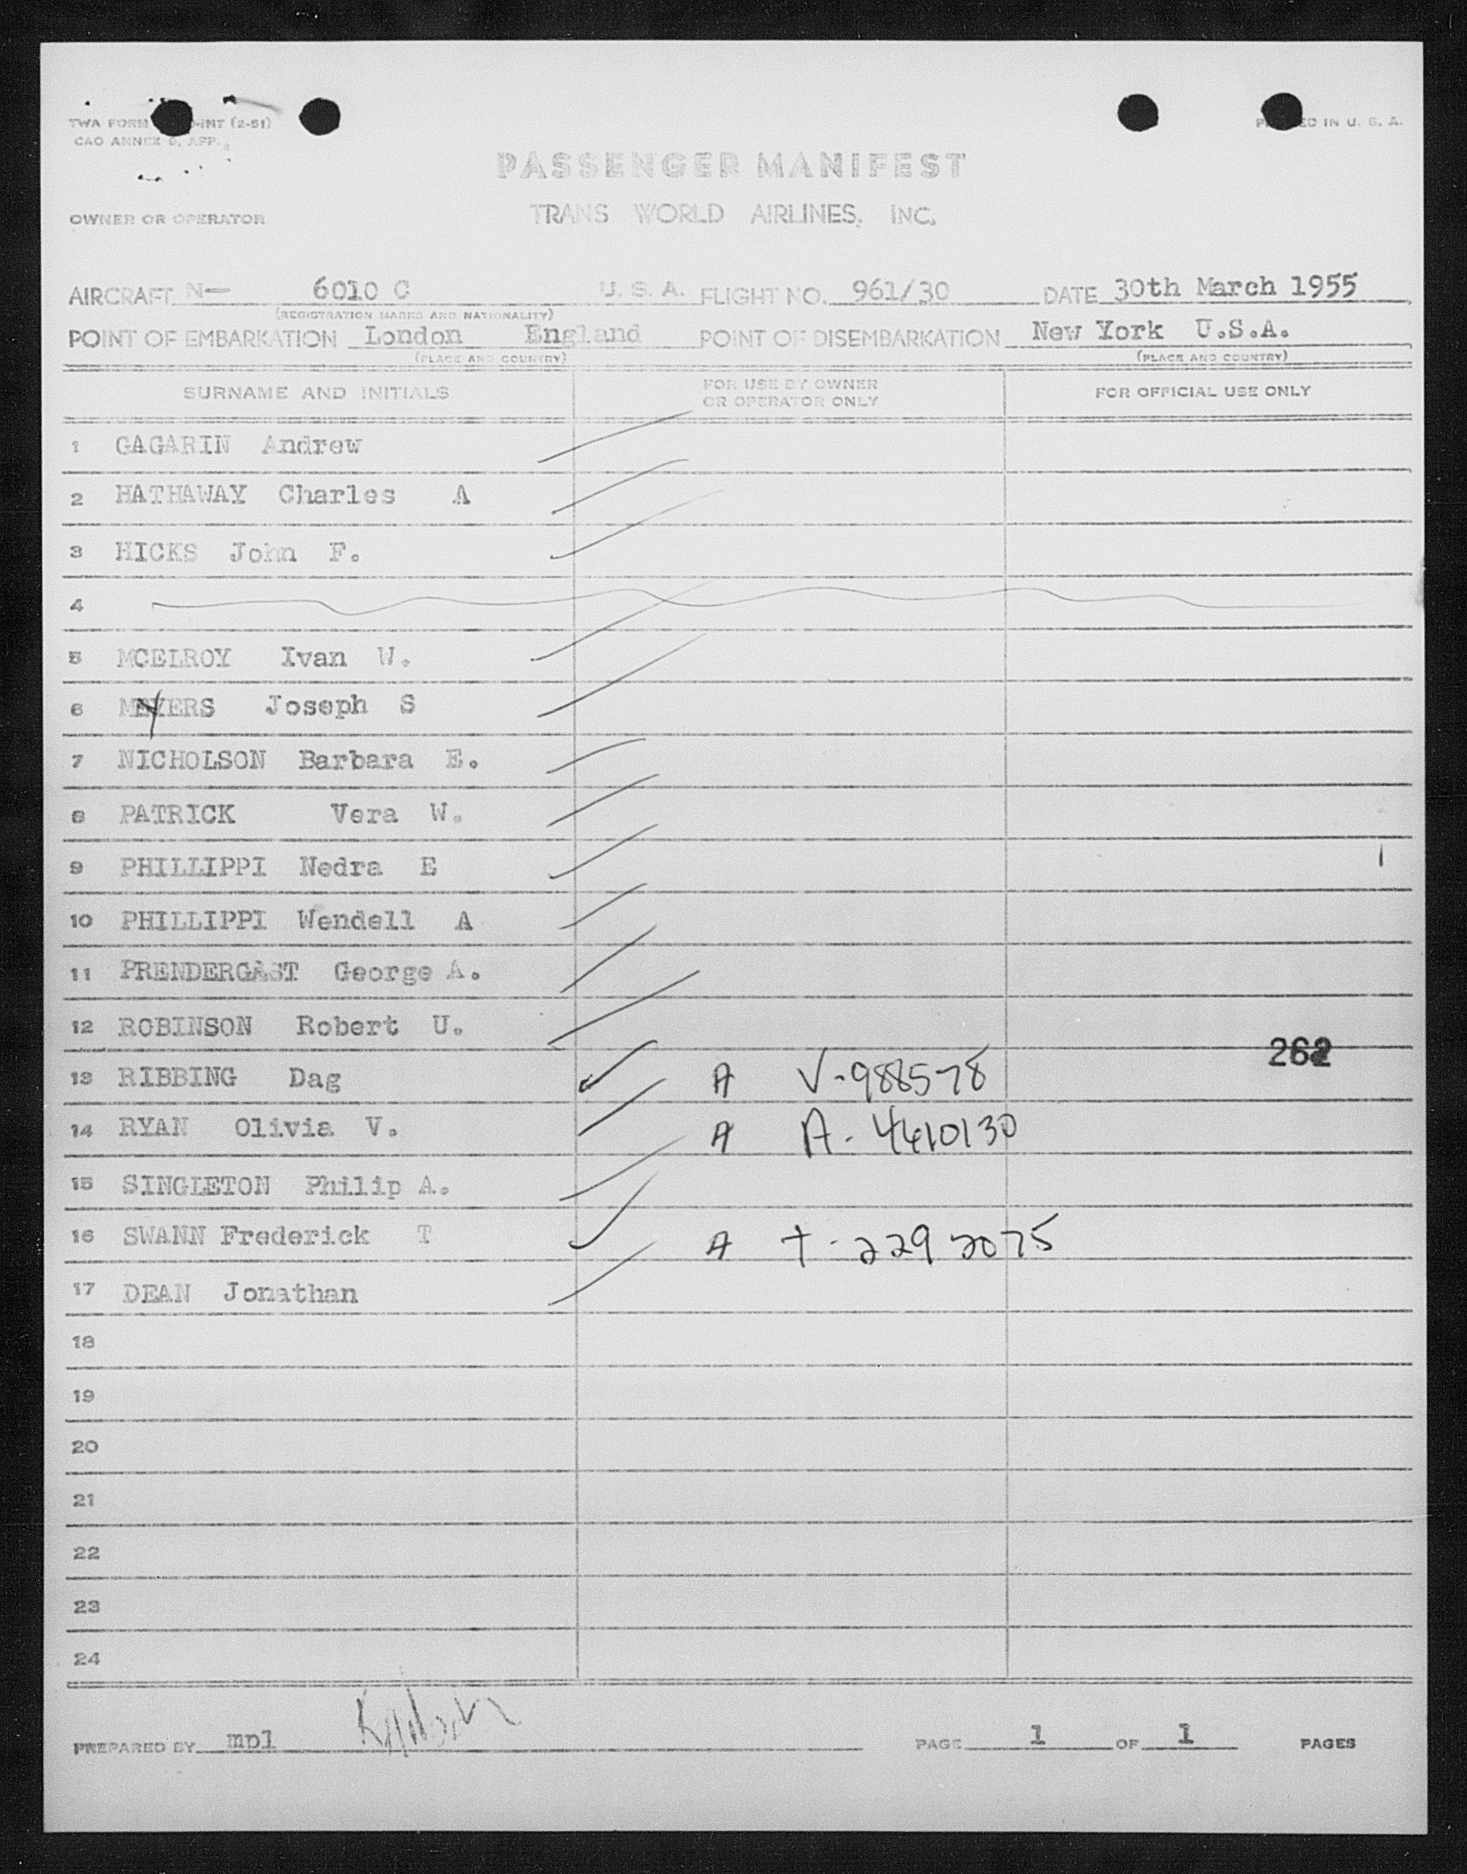 TWA FORM -INT (2-51)
CAO ANNEX 9, APP.
PRINTED IN U. S. A.
PASSENGER MANIFEST
OWNER OR OPERATOR TRANS WORLD AIRLINES, INC.
AIRCRAFT N— 6010 C U. S. A. FLIGHT NO. 961/30 DATE 30th March 1955
(REGISTRATION MARKS AND NATIONALITY)
POINT OF EMBARKATION London England POINT OF DISEMBARKATION New York U.S.A.
(PLACE AND COUNTRY) (PLACE AND COUNTRY)
SURNAME AND INITIALS FOR USE BY OWNER OR OPERATOR ONLY FOR OFFICIAL USE ONLY
1 GAGARIN Andrew
2 HATHAWAY Charles A
3 HICKS John F.
4
5 MCELROY Ivan W.
6 MYERS Joseph S
7 NICHOLSON Barbara E.
8 PATRICK Vera W.
9 PHILLIPPI Nedra E
10 PHILLIPPI Wendell A
11 PRENDERGAST George A.
12 ROBINSON Robert U.
262
13 RIBBING Dag A V-988578
14 RYAN Olivia V. A A-4610130
15 SINGLETON Philip A.
16 SWANN Frederick T A T-2292075
17 DEAN Jonathan
18
19
20
21
22
23
24
PREPARED BY mpl PAGE 1 OF 1 PAGES